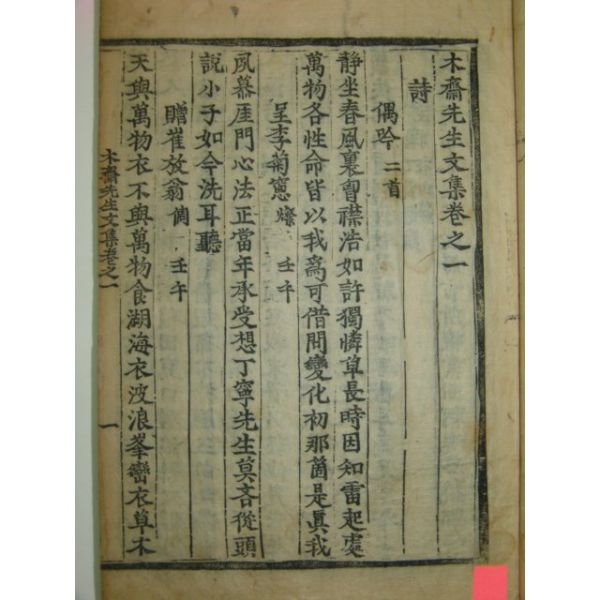 木齋先生文集卷之一
詩
偶吟 二首
静坐春風裏曺襟浩如許獨憐草長時因知雷起處
萬物各性命皆以我爲可借問變化初那箇是眞我
呈李菊窓燦 壬午
夙慕厓門心法正當年承受想丁寧先生莫吝從頭
說小子如今洗耳聽
贈崔放翁倜 壬午
天與萬物衣不與萬物食湖海衣波浪峯巒衣草木
木齋先生文集卷之一
一